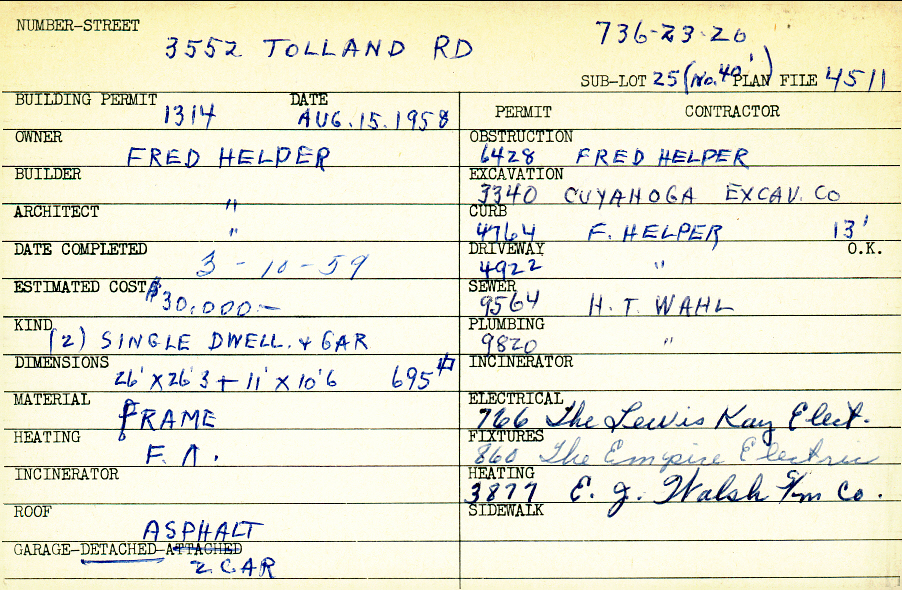 NUMBER-STREET
3552 TOLLAND RD
736-23-26
SUB-LOT 25 (No. 40') PLAN FILE 4511
BUILDING PERMIT 1314 DATE AUG. 15. 1958
PERMIT CONTRACTOR
OWNER FRED HELPER
OBSTRUCTION 6428 FRED HELPER
BUILDER "
EXCAVATION 3340 CUYAHOGA EXCAV. CO
ARCHITECT "
CURB 4764 F. HELPER 13'
DATE COMPLETED 3-10-59
DRIVEWAY 4922 " O.K.
ESTIMATED COST $30,000.—
SEWER 9564 H. T. WAHL
KIND (2) SINGLE DWELL. & GAR
PLUMBING 9820 "
DIMENSIONS 26' X 26'3 + 11' X 10'6 695
INCINERATOR
MATERIAL FRAME
ELECTRICAL 766 The Lewis Kay Elect.
HEATING F. A.
FIXTURES 860 The Empire Electric
INCINERATOR
HEATING 3877 E. J. Walsh Co.
ROOF ASPHALT
SIDEWALK
GARAGE-DETACHED-ATTACHED
2 CAR